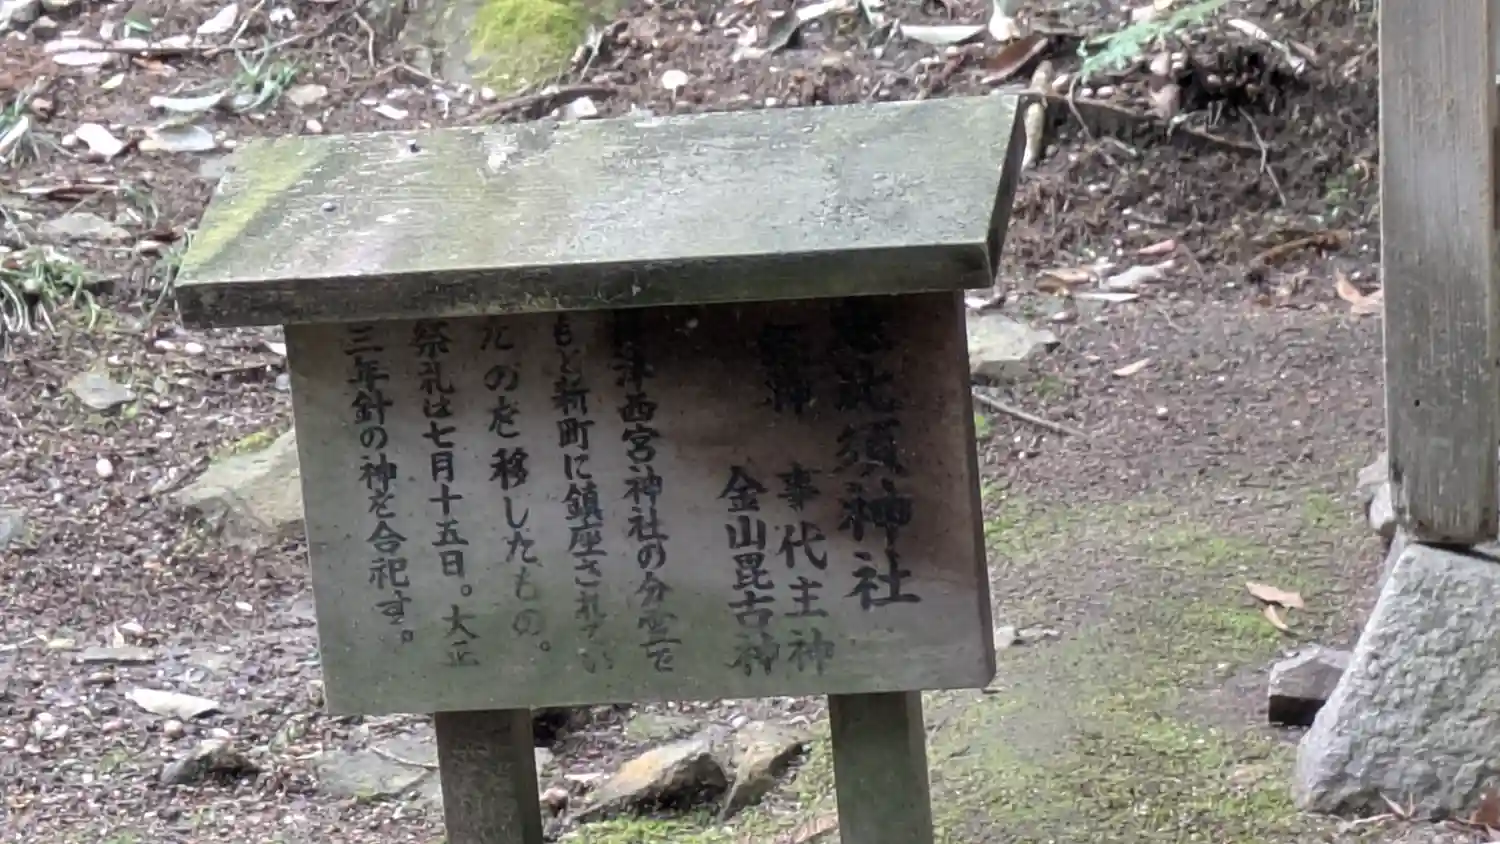 恵比須神社
祭神 事代主神
金山毘古神
津西宮神社の分霊で
もと新町に鎮座されてい
たのを移したもの。
祭礼は七月十五日。大正
三年針の神を合祀す。